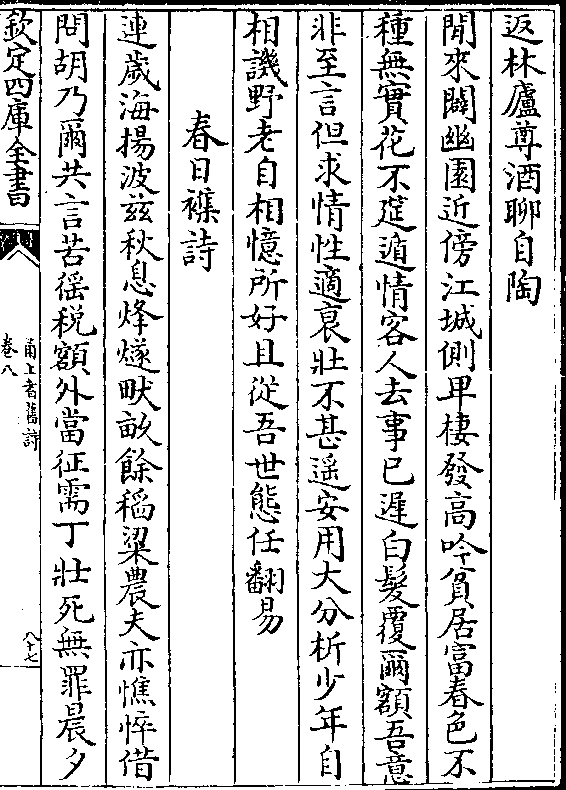 返林廬尊酒聊自陶
閒來闢幽園近傍江城側早棲發高吟貧居富春色不
種無實花不延遁情客人去事已遲白髮覆爾額吾意
非至言但求情性適衰壯不甚遥安用大分析少年自
相譏野老自相憶所好且從吾世態任翻易
春日襍詩
連歲海揚波兹秋息烽燧畎畝餘稻粱農夫亦憔悴借
問胡乃爾共言苦徭税額外當征需丁壯死無罪晨夕
欽定四庫全書
甬上耆舊詩
卷八
八十七